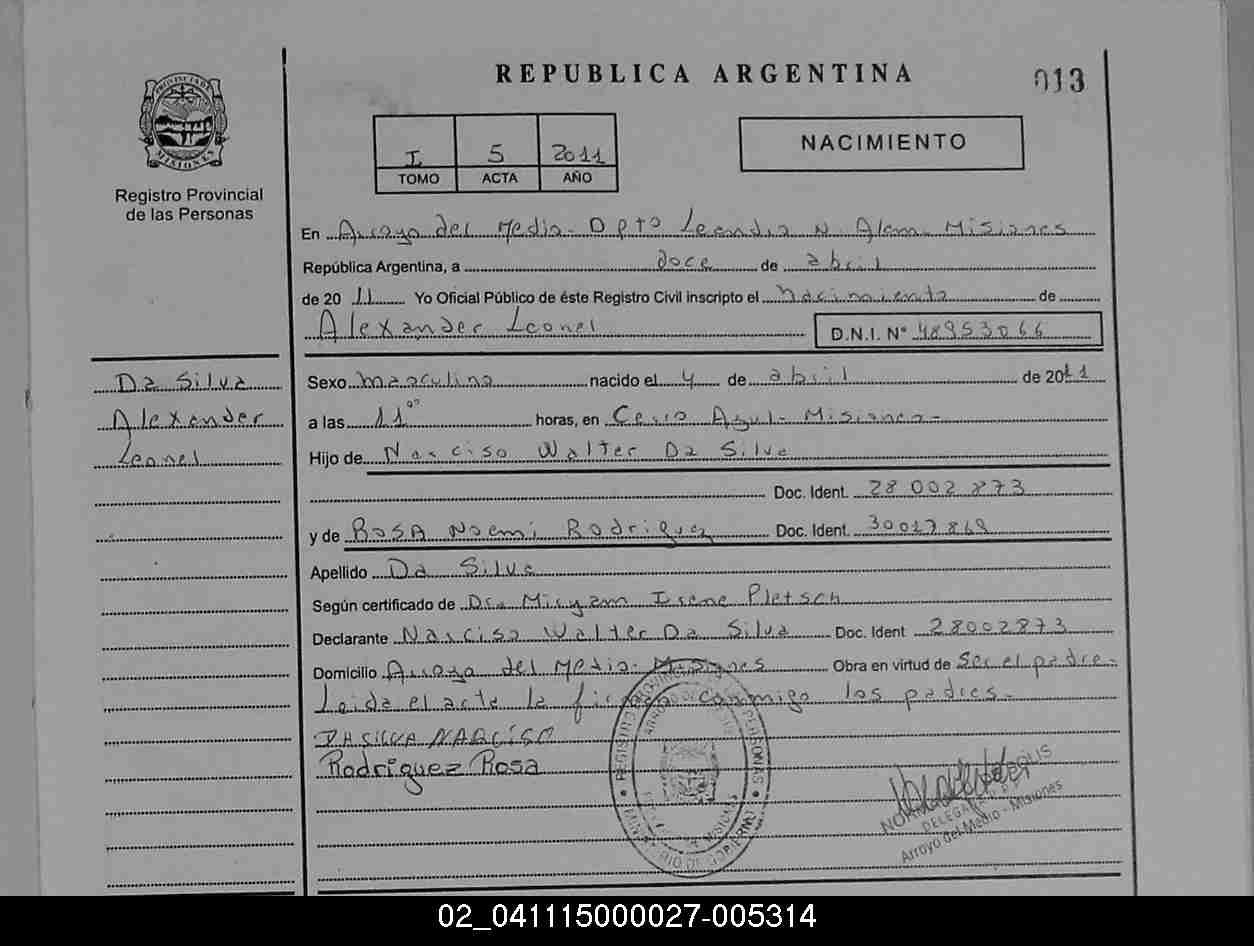 REPUBLICA ARGENTINA
013
PROVINCIA DE
MISIONES
Registro Provincial
de las Personas
I 5 2011
TOMO ACTA AÑO
NACIMIENTO
En Arroyo del Medio - Dpto Leandro N. Alem - Misiones
República Argentina, a doce de abril
de 20 11 Yo Oficial Público de éste Registro Civil inscripto el Nacimiento de
Alexander Leonel D.N.I. N° 48953066
Da Silva
Alexander
Leonel
Sexo masculino nacido el 4 de abril de 2011
a las 11°° horas, en Cerro Azul - Misiones -
Hijo de Narciso Walter Da Silva
Doc. Ident. 28 002 873
y de Rosa Noemi Rodriguez Doc. Ident. 30017869
Apellido Da Silva
Según certificado de Dra Miryam Irene Pletsch
Declarante Narciso Walter Da Silva Doc. Ident 28002873
Domicilio Arroyo del Medio - Misiones Obra en virtud de Ser el padre -
Leida el acta la firman conmigo los padres -
DA SILVA NARCISO
Rodriguez Rosa
REGISTRO PROVINCIAL DE LAS PERSONAS
MINISTERIO DE GOBIERNO
DELEGADA
Arroyo del Medio - Misiones
02_041115000027-005314